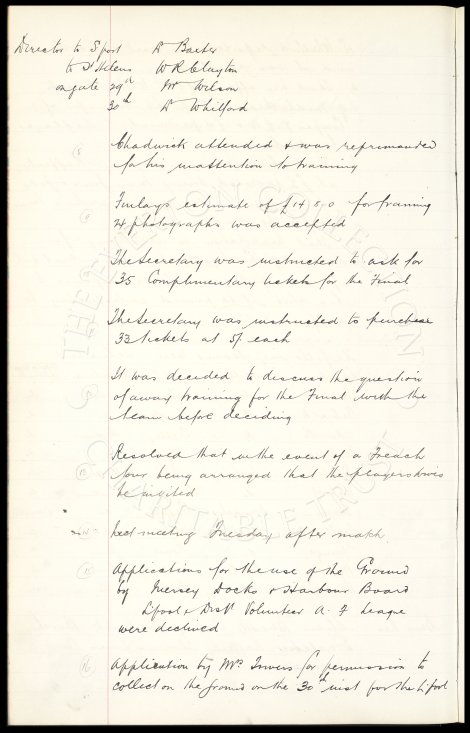 Director to Sport A Baxter
to St Helens W R Clayton
on gate 29th Mr Wilson
30th D Whitford
8 Chadwick attended & was reprimanded
for his inattention to training
9 Finlays estimate of £14 5.0 for framing
24 photographs was accepted
The Secretary was instructed to ask for
135 Complimentary tickets for the Final
The Secretary was instructed to purchase
33 tickets at 5/ each
It was decided to discuss the question
of away training for the Final with the
team before deciding
13 Resolved that in the event of a French
tour being arranged that the players wives
be invited
14 Next meeting Tuesday after match
15 Applications for the use of the Ground
by Mersey Docks & Harbour Board
Lpool & Dist Volunteer A. F League
were declined
16 Application by Mrs Towers for permission to
collect on the ground on the 30th inst for the Lpool
THE EVERTON COLLECTION
CHARITABLE TRUST